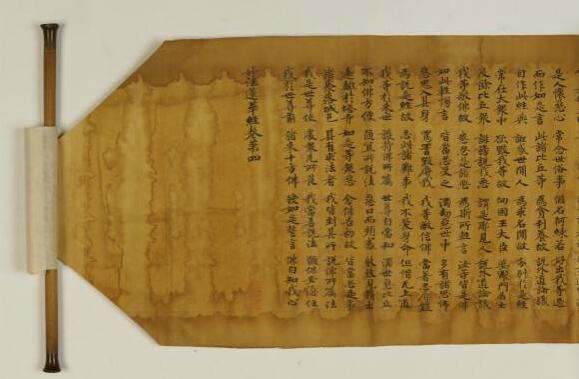 是人懷惡心 常念世俗事 假名阿練若 好出我等過
而作如是言 此諸比丘等 為貪利養故 說外道論議
自作此經典 誑惑世間人 為求名聞故 分別於是經
常在大衆中 欲毀我等故 向國王大臣 婆羅門居士
及餘比丘衆 誹謗說我惡 謂是邪見人 說外道論議
我等敬佛故 悉忍是諸惡 為斯所輕言 汝等皆是佛
如此輕慢言 皆當忍受之 濁劫惡世中 多有諸恐怖
惡鬼入其身 罵詈毀辱我 我等敬信佛 當著忍辱鎧
為說是經故 忍此諸難事 我不愛身命 但惜无上道
我等於來世 護持佛所囑 世尊自當知 濁世惡比丘
不知佛方便 隨宜所說法 惡口而顰蹙 數數見擯出
遠離於塔寺 如是等衆惡 念佛告勅故 皆當忍是事
諸聚落城邑 其有求法者 我皆到其所 說佛所囑法
我是世尊使 處衆无所畏 我當善說法 願佛安隱住
我於世尊前 諸來十方佛 發如是誓言 佛自知我心
妙法蓮華經卷第四